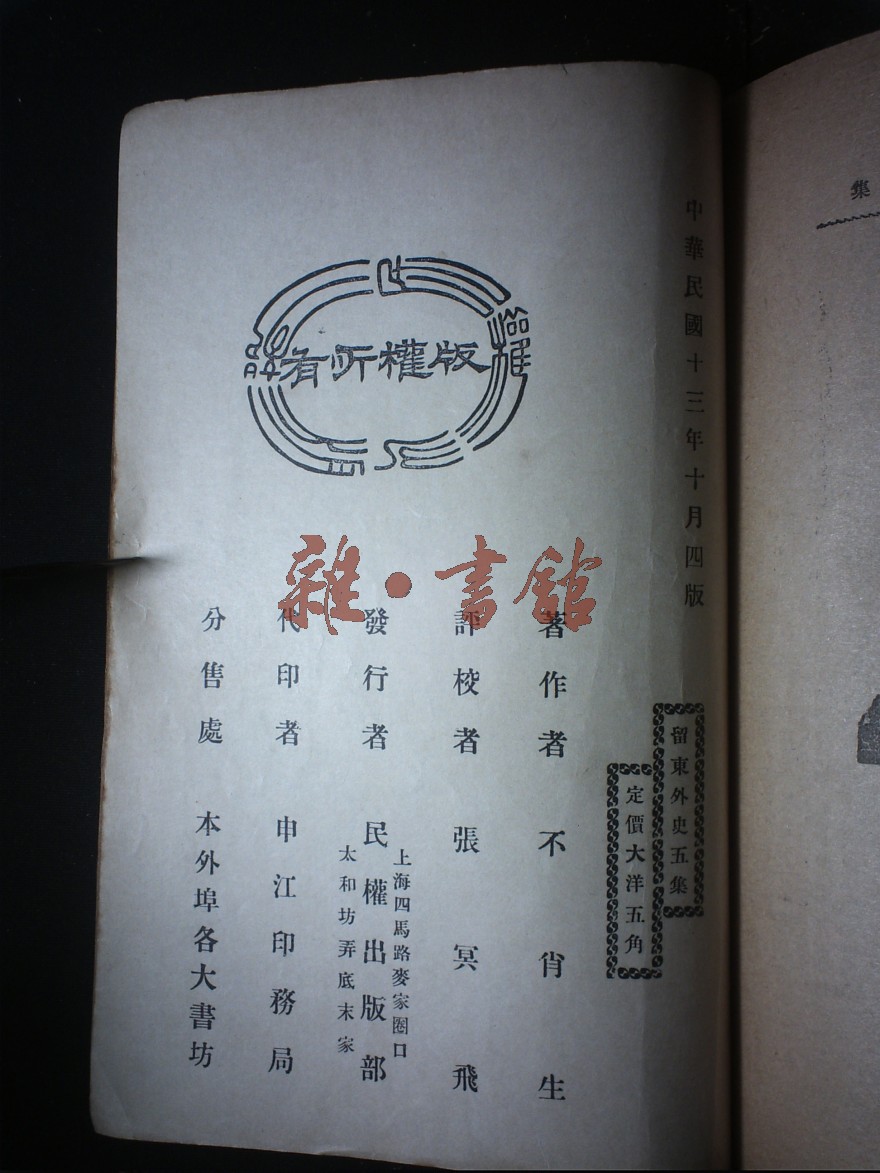 中華民國十三年十月四版
留東外史五集
定價大洋五角
著作者 不肖生
評校者 張冥飛
發行者 民權出版部
上海四馬路麥家圈口
太和坊弄底末家
代印者 申江印務局
分售處 本外埠各大書坊
版權所有
雜·書館
集